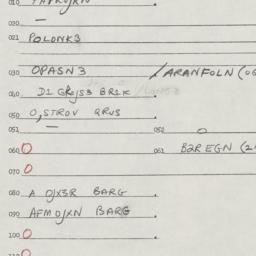 010
020 —
021 POLONK3
030 OPASN3 /ARANFOLN (
040 D1 BR1K
050 O,STROV QRUS
051 — 052 O
060 O 061 B2REGN (2
070 O
080 A OJX3R BARG
090 AFMOJXN BARG
100 O
110 O